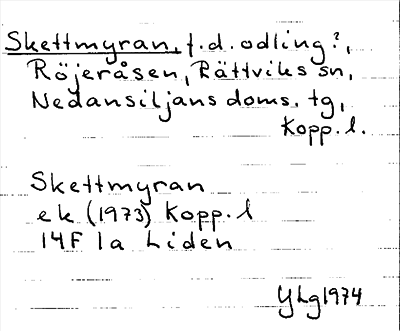 Skettmyran, f.d. odling?,
Röjeråsen, Rättviks sn,
Nedansiljans doms. tg,
Kopp. l.
Skettmyran
ek (1973) Kopp. l
14F 1a Liden
YLg 1974